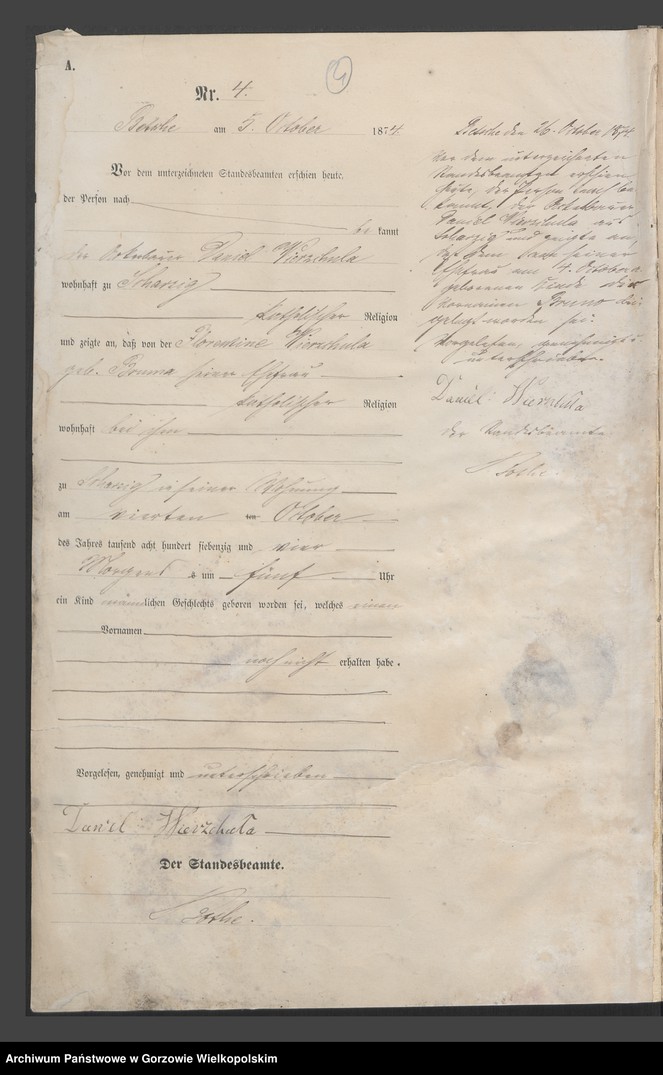 A.
4
Nr. 4.
Betsche am 5. October 1874.
Vor dem unterzeichneten Standesbeamten erschien heute,
der Person nach
be kannt
der Daniel Wierzchula
wohnhaft zu Scharzig
katholischer Religion
und zeigte an, daß von der Florentine Wierzchula
geb. Bruma seiner Ehefrau
katholischer Religion
wohnhaft bei ihm
zu Scharzig in seiner Wohnung
am vierten October
des Jahres tausend acht hundert siebenzig und vier
Morgens um fünf Uhr
ein Kind männlichen Geschlechts geboren worden sei, welches einen
Vornamen
noch nicht erhalten habe.
Vorgelesen, genehmigt und unterschrieben
Daniel Wierzchuła
Der Standesbeamte.
Betsche den 26. October 1874
Vor dem unterzeichneten
Standesbeamten erschien
heute, der Person nach be
kannt, der
Daniel Wierzchula aus
Scharzig und zeigte an,
daß dem von seiner
Ehefrau am 4. October
geborenen Kinde
Vornamen Bruno bei
gelegt worden sei.
Vorgelesen, genehmigt
unterschrieben.
Daniel Wierzchuła
der Standesbeamte
Archiwum Państwowe w Gorzowie Wielkopolskim